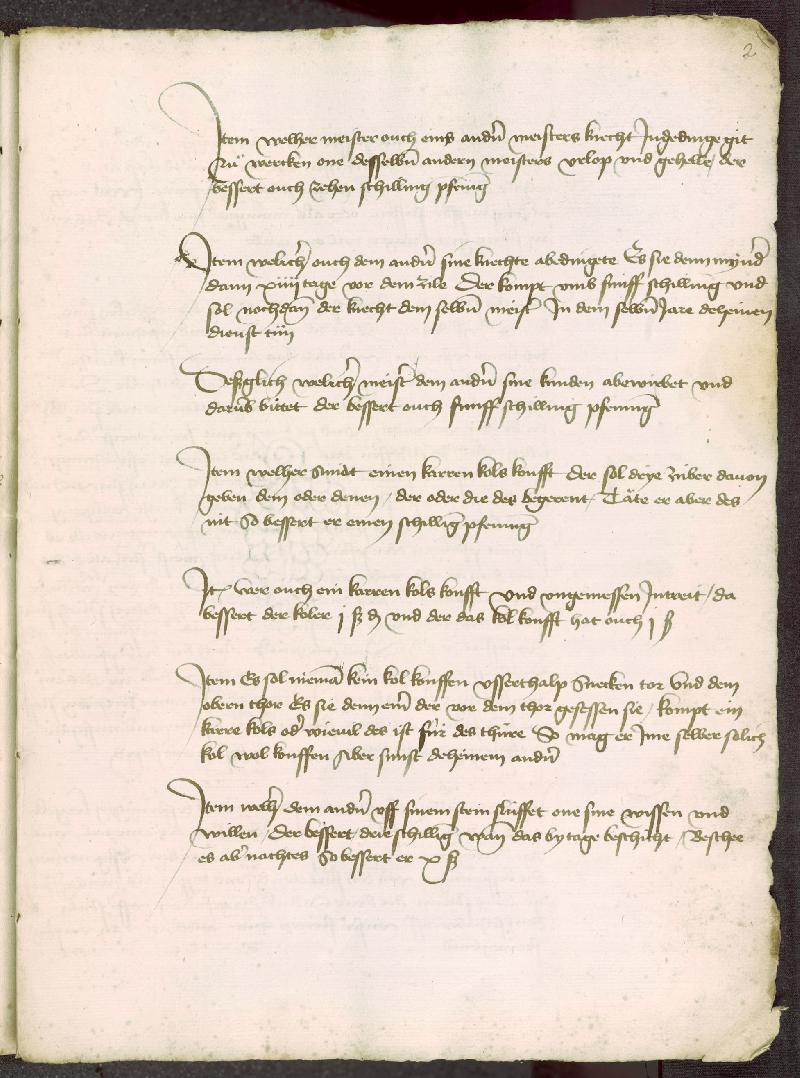 2
Item welher meister ouch eins andrn meisters knecht Ingedinge git
zu wercken one desselbn andern meisters vrlop vnd gehelle / der
bessert ouch zehen schilling pfenig
Item welicher ouch dem andrn sine knechte abedingete Es sie denn mynder
dann xiiij tage vor dem zile Der kompt vmb funff schilling vnd
sol nochdan der knecht dem selbn meister In dem selbn Jare deheinen
dienst tun
Desszglich welicher meister dem andrn sine kunden abewirbet vnd
darumb bittet der bessert ouch funff schilling pfennig
Item welher smidt einen karren kols koufft der sol drye zuber dauon
geben dem oder denen / der oder die des begerent / Täte er aber des
nit So bessert er einen schillig pfennig
Itm wer ouch ein karren kols koufft vnd vngemessen Intreit / da
bessert der koler j ß d vnd der das kol koufft hat ouch j ß
Item Es sol nieman kein kol kouffen vsserthalp tor vnd dem
obern thor Es sie denn einer der vor dem thor gesessen sie / kompt ein
karre kols oder wieuil des ist für des thüre So mag er Ime selber solich
kol wol kouffen Aber sunst deheinem andrn
Item welher dem andrn vff sinem stein sliffet one sine wissen vnd
willen / der bessert drie schillig wan das by tage beschicht / Beschee
es aber nachtes So bessert er x ß